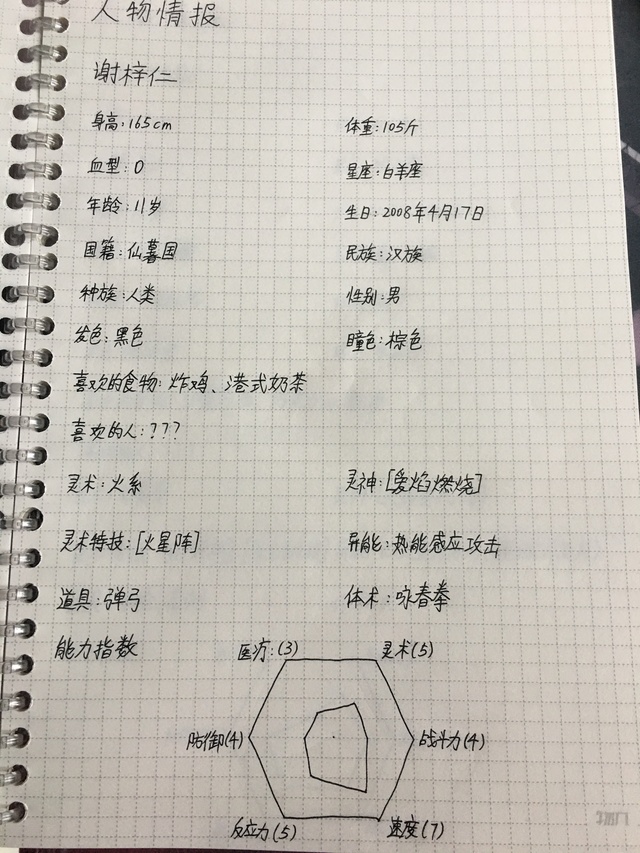 人物情报
谢梓仁
身高:165cm 体重:105斤
血型:O 星座:白羊座
年龄:11岁 生日:2008年4月17日
国籍:仙薯国 民族:汉族
种族:人类 性别:男
发色:黑色 瞳色:棕色
喜欢的食物:炸鸡、港式奶茶
喜欢的人:???
灵术:火系 灵神:[爱焰燃烧]
灵术特技:[火星阵] 异能:热能感应攻击
道具:弹弓 体术:咏春拳
能力指数
医疗:(3) 灵术(5)
防御(4) 战斗力(4)
反应力(5) 速度(7)